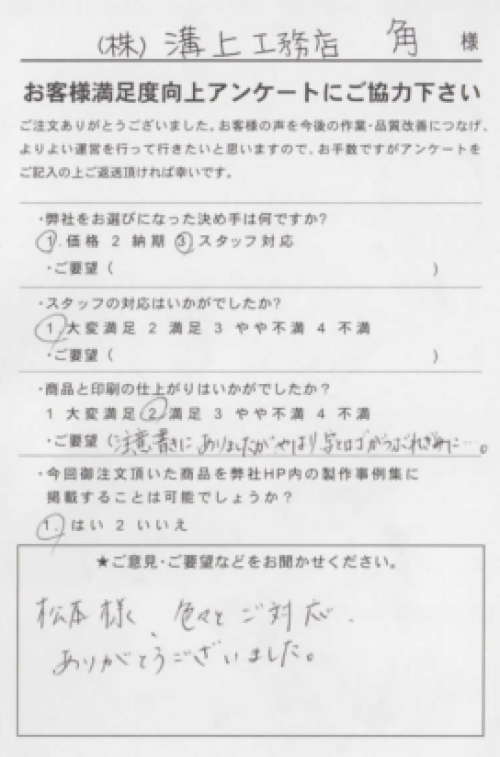 (株)溝上工務店 角 様
お客様満足度向上アンケートにご協力下さい
ご注文ありがとうございました。お客様の声を今後の作業・品質改善につなげ、
よりよい運営を行って行きたいと思いますので、お手数ですがアンケートを
ご記入の上ご返送頂ければ幸いです。
・弊社をお選びになった決め手は何ですか?
1.価格 2 納期 3 スタッフ対応
・ご要望 ( )
・スタッフの対応はいかがでしたか?
1.大変満足 2 満足 3 やや不満 4 不満
・ご要望 ( )
・商品と印刷の仕上がりはいかがでしたか?
1 大変満足 2 満足 3 やや不満 4 不満
・ご要望 (注意書きにありましたがやはり字とロゴがつぶれぎみに…。
・今回御注文頂いた商品を弊社HP内の製作事例集に
掲載することは可能でしょうか?
1.はい 2 いいえ
★ご意見・ご要望などをお聞かせください。
松本様、色々とご対応、
ありがとうございました。